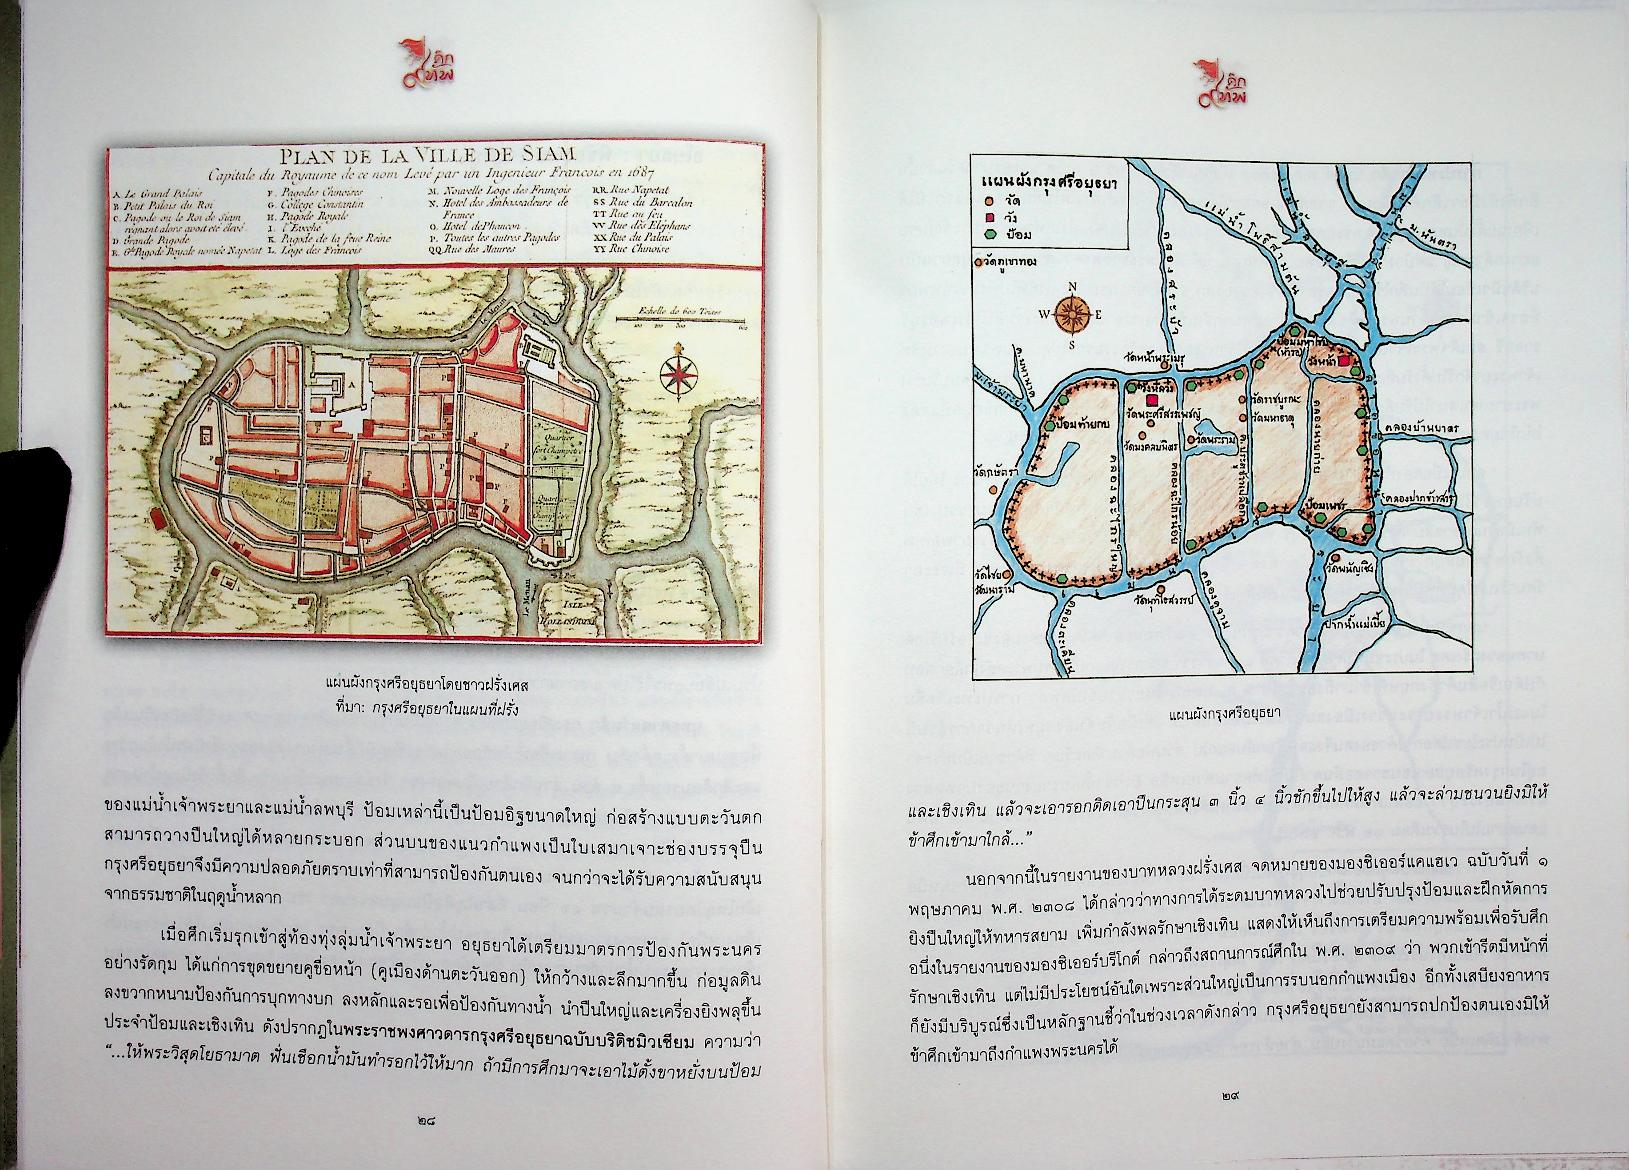 ศึก
ทัพ
PLAN DE LA VILLE DE SIAM
Capitale du Royaume de ce nom Levé par un Ingenieur Francois en 1687
A. Le Grand Palais
B. Petit Palais du Roi
C. Pagode ou le Roi de Siam
regnant alors avoit eté elevé
D. Grande Pagode
E. Gde Pagode Royale nomée Napetat
F. Pagodes Chinoises
G. Collége Constantin
H. Pagode Royale
I. l'Evêché
K. Pagode de la feue Reine
L. Loge des François
M. Nouvelle Loge des François
N. Hotel des Ambassadeurs de
France
O. Hotel de Phaucon
P. Toutes les autres Pagodes
QQ Rue des Maures
RR Rue Napetat
SS Rue du Barcalon
TT Rue au feu
VV Rue des Elephans
XX Rue du Palais
YY Rue Chinoise
Echelle de 600 Toises
A
Quartier
fort Champetre
Le Menan
ISLE
HOLLANDOISE
แผ่นผังกรุงศรีอยุธยาโดยชาวฝรั่งเศส
ที่มา: กรุงศรีอยุธยาในแผนที่ฝรั่ง
ของแม่น้ำเจ้าพระยาและแม่น้ำลพบุรี ป้อมเหล่านี้เป็นป้อมอิฐขนาดใหญ่ ก่อสร้างแบบตะวันตก
สามารถวางปืนใหญ่ได้หลายกระบอก ส่วนบนของแนวกำแพงเป็นใบเสมาเจาะช่องบรรจุปืน
กรุงศรีอยุธยาจึงมีความปลอดภัยตราบเท่าที่สามารถป้องกันตนเอง จนกว่าจะได้รับความสนับสนุน
จากธรรมชาติในฤดูน้ำหลาก
เมื่อศึกเริ่มรุกเข้าสู่ท้องทุ่งลุ่มน้ำเจ้าพระยา อยุธยาได้เตรียมมาตรการป้องกันพระนคร
อย่างรัดกุม ได้แก่การขุดขยายคูขื่อหน้า (คูเมืองด้านตะวันออก) ให้กว้างและลึกมากขึ้น ก่อมูลดิน
ลงขวากหนามป้องกันการบุกทางบก ลงหลักและรอเพื่อป้องกันทางน้ำ นำปืนใหญ่และเครื่องยิงพลุขึ้น
ประจำป้อมและเชิงเทิน ดังปรากฏในพระราชพงศาวดารกรุงศรีอยุธยาฉบับบริติชมิวเซียม ความว่า
“...ให้พระวิสุดโยธามาต ฟั่นเชือกน้ำมันทำรอกไว้ให้มาก ถ้ามีการศึกมาจะเอาไม้ตั้งขาหยั่งบนป้อม
๒๘
ศึก
ทัพ
แผนผังกรุงศรีอยุธยา
วัด
วัง
ป้อม
วัดภูเขาทอง
N
W
E
S
คลองสระบัว
แม่น้ำโพธิ์สามต้น
วัดหน้าพระเมรุ
วังหน้า
วังหลวง
ป้อมท้ายกบ
วัดพระศรีสรรเพชญ์
วัดราชบูรณะ
วัดมหาธาตุ
วัดพระราม
วัดมงคลบพิตร
คลองบ้านบาตร
วัดกษัตรา
คลองปากข้าวสาร
ป้อมเพชร
วัดพนัญเชิง
วัดไชย
วัฒนาราม
วัดพุทไธสวรรย์
คลองคูจาม
คลองตะเคียน
ปากน้ำแม่เบี้ย
แผนผังกรุงศรีอยุธยา
และเชิงเทิน แล้วจะเอารอกติดเอาปืนกระสุน ๓ นิ้ว ๔ นิ้วชักขึ้นไปให้สูง แล้วจะล่ามชนวนยิงมิให้
ข้าศึกเข้ามาใกล้...”
นอกจากนี้ในรายงานของบาทหลวงฝรั่งเศส จดหมายของมองซิเออร์แคแฮเว ฉบับวันที่ ๑
พฤษภาคม พ.ศ. ๒๓๐๘ ได้กล่าวว่าทางการได้ระดมบาทหลวงไปช่วยปรับปรุงป้อมและฝึกหัดการ
ยิงปืนใหญ่ให้ทหารสยาม เพิ่มกำลังพลรักษาเชิงเทิน แสดงให้เห็นถึงการเตรียมความพร้อมเพื่อรับศึก
อนึ่งในรายงานของมองซิเออร์บรีโกต์ กล่าวถึงสถานการณ์ศึกใน พ.ศ. ๒๓๐๙ ว่า พวกเข้ารีตมีหน้าที่
รักษาเชิงเทิน แต่ไม่มีประโยชน์อันใดเพราะส่วนใหญ่เป็นการรบนอกกำแพงเมือง อีกทั้งเสบียงอาหาร
ก็ยังมีบริบูรณ์ซึ่งเป็นหลักฐานชี้ว่าในช่วงเวลาดังกล่าว กรุงศรีอยุธยายังสามารถปกป้องตนเองมิให้
ข้าศึกเข้ามาถึงกำแพงพระนครได้
๒๙